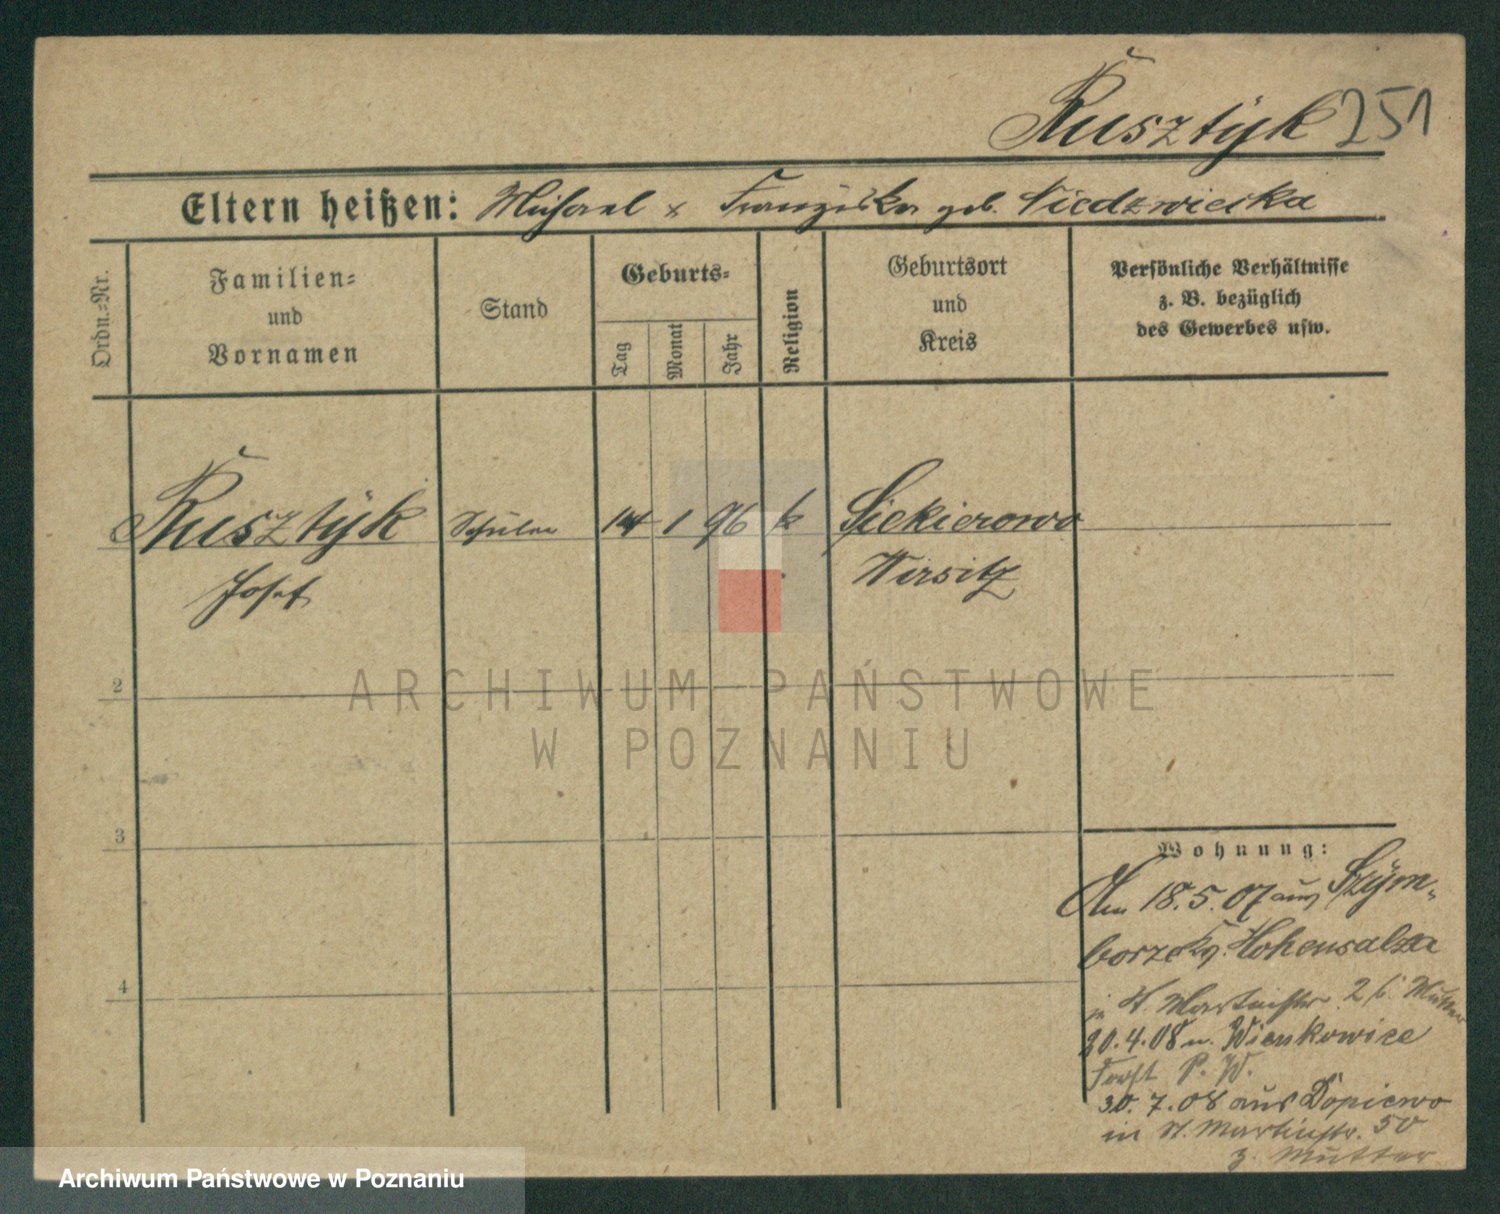 Rusztyk 251
Eltern heißen: Michael x Franziska geb. Niedzwieska
Ordn.-Nr.
Familien-
und
Vornamen
Stand
Geburts-
Tag
Monat
Jahr
Religion
Geburtsort
und
Kreis
Persönliche Verhältnisse
z. B. bezüglich
des Gewerbes usw.
Rusztyk Schüler 14 1 96 k Siekierowo
Josef Wirsitz
ARCHIWUM PAŃSTWOWE
W POZNANIU
2
3
4
Wohnung:
Am 18.5.07 aus Szÿm-
borze Kr. Hohensalza
in St. Martinstr. 26 Mutter
20.4.08 n. Wienkowice
Forst P. W.
30.7.08 aus Dopiewo
in St. Martinstr. 50
z. Mutter
Archiwum Państwowe w Poznaniu